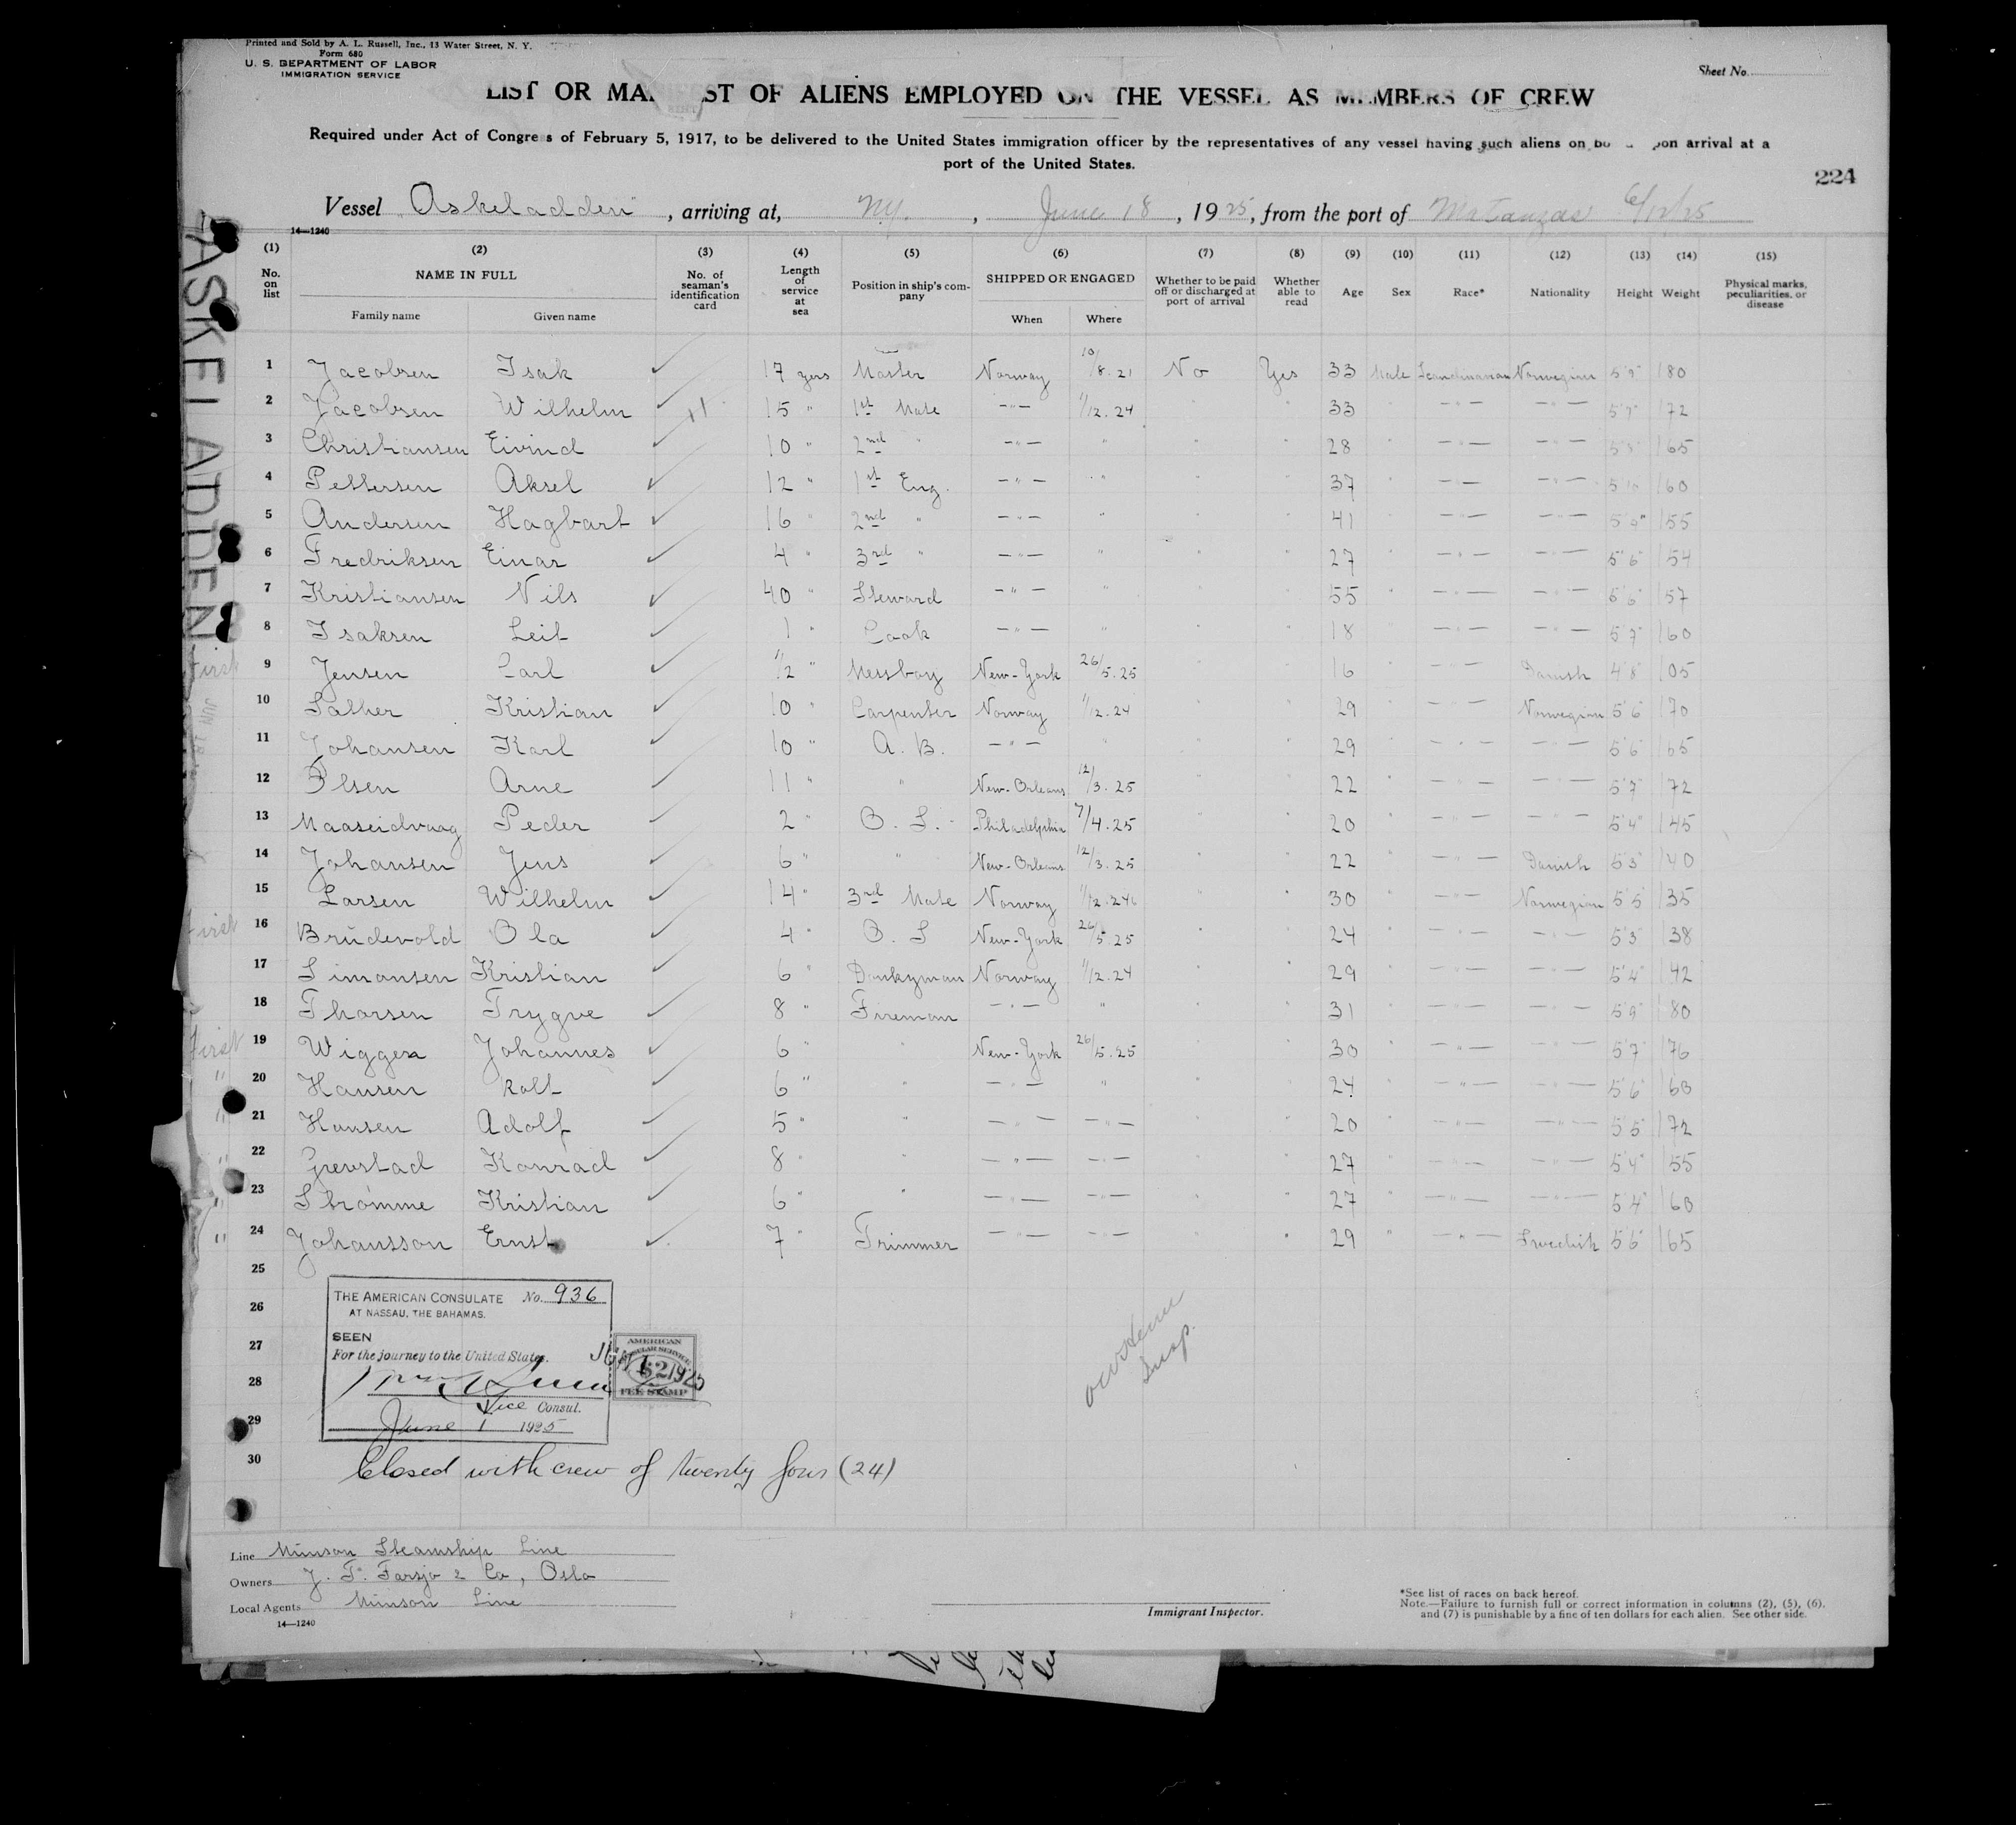 Printed and Sold by A. L. Russell, Inc., 13 Water Street, N. Y.
Form 680
U. S. DEPARTMENT OF LABOR
IMMIGRATION SERVICE
Sheet No.
LIST OR MA ST OF ALIENS EMPLOYED ON THE VESSEL AS MEMBERS OF CREW
Required under Act of Congre s of February 5, 1917, to be delivered to the United States immigration officer by the representatives of any vessel having such aliens on bo pon arrival at a
port of the United States.
224
Vessel "Askeladden", arriving at, NY., June 18, 1925, from the port of Matanzas 6/12/25
14—1240
ASKELADDEN
(1) (2) (3) (4) (5) (6) (7) (8) (9) (10) (11) (12) (13) (14) (15)
No. on list NAME IN FULL Family name Given name No. of seaman's identification card Length of service at sea Position in ship's company SHIPPED OR ENGAGED When Where Whether to be paid off or discharged at port of arrival Whether able to read Age Sex Race* Nationality Height Weight Physical marks, peculiarities, or disease
1 Jacobsen Isak ✓ 17 yers Master Norway 10/8.21 No Yes 33 Male Scandinavian Norwegian 5'9" 180
2 Jacobsen Wilhelm ✓ 15 " 1st Mate —"— 1/12.24 " " 33 " —"— —"— 5'7" 172
3 Christiansen Eivind ✓ 10 " 2nd " —"— " " " 28 " —"— —"— 5'8" 165
4 Pettersen Aksel ✓ 12 " 1st Eng. —"— " " " 37 " —"— —"— 160
5 Andersen Hagbart ✓ 16 " 2nd " —"— " " " 41 " —"— —"— 155
6 Fredriksen Einar ✓ 4 " 3rd " —"— " " " 27 " —"— —"— 5'6" 154
7 Kristiansen Nils ✓ 40 " Steward —"— " " " 55 " —"— —"— 5'6" 157
8 Isaksen Leif ✓ 1 " Cook —"— " " " 18 " —"— —"— 5'7" 160
First 9 Jensen Carl ✓ 1/2 " Messboy New-York 26/5.25 " " 16 " —"— Danish 4'8" 105
10 Sather Kristian ✓ 10 " Carpenter Norway 1/12.24 " " 29 " —"— Norwegian 5'6" 170
11 Johansen Karl ✓ 10 " A. B. —"— " " " 29 " —"— —"— 5'6" 165
12 Olsen Arne ✓ 11 " " New-Orleans 12/3.25 " " 22 " —"— —"— 5'7" 172
13 Maaseidvaag Peder ✓ 2 " O. S. Philadelphia 7/4.25 " " 20 " —"— —"— 5'4" 145
14 Johansen Jens ✓ 6 " " New-Orleans 12/3.25 " " 22 " —"— Danish 5'3" 140
15 Larsen Wilhelm ✓ 14 " 3rd Mate Norway 1/12.24 " " 30 " —"— Norwegian 5'5" 135
First 16 Brüdevold Ola ✓ 4 " O. S New-York 26/5.25 " " 24 " —"— —"— 5'3" 138
17 Simonsen Kristian ✓ 6 " Donkyman Norway 1/12.24 " " 29 " —"— —"— 5'4" 142
18 Thorsen Trygve ✓ 8 " Fireman —"— " " " 31 " —"— —"— 5'9" 180
First 19 Wiggen Johannes ✓ 6 " " New-York 26/5.25 " " 30 " —"— —"— 5'7" 176
" 20 Hansen Rolf ✓ 6 " " —"— " " " 24 " —"— —"— 5'6" 160
" 21 Hansen Adolf ✓ 5 " " —"— —"— " " 20 " —"— —"— 5'5" 172
" 22 Grevstad Konrad ✓ 8 " " —"— —"— " " 27 " —"— —"— 5'4" 155
" 23 Strömme Kristian ✓ 6 " " —"— —"— " " 27 " —"— —"— 5'4" 160
" 24 Johansson Ernst ✓ 7 " Trimmer —"— —"— " " 29 " —"— Swedish 5'6" 165
25
26
27
28
29
30
THE AMERICAN CONSULATE No. 936
AT NASSAU, THE BAHAMAS.
SEEN
For the journey to the United States.
Vice Consul.
June 1 1925
AMERICAN
CONSULAR SERVICE
$2
FEE STAMP
Insp.
Closed with crew of twenty four (24)
Line Munson Steamship Line
Owners J. F. Farsjo & Co, Oslo
Local Agents Munson Line
14—1240
Immigrant Inspector.
*See list of races on back hereof.
Note.—Failure to furnish full or correct information in columns (2), (5), (6),
and (7) is punishable by a fine of ten dollars for each alien. See other side.